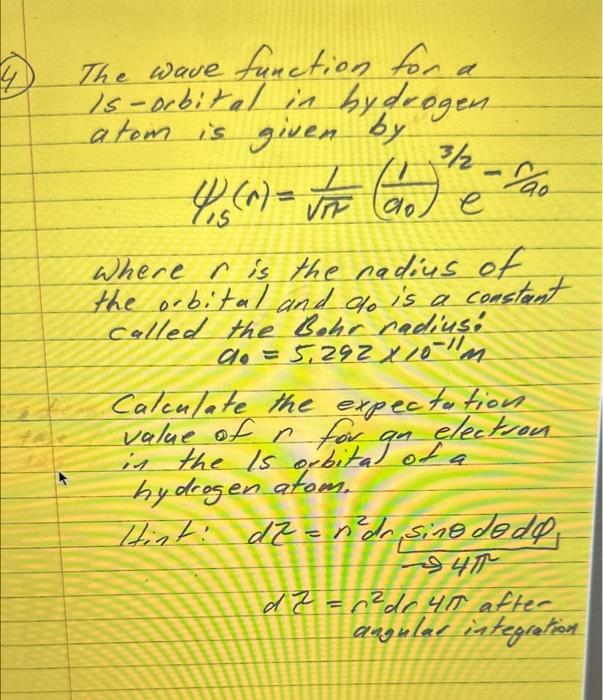 4) The wave function for a
1s-orbital in hydrogen
atom is given by
ψ₁s(r) = 1/√π (1/a₀)^3/2 e^-r/a₀
where r is the radius of
the orbital and a₀ is a constant
called the Bohr radius:
a₀ = 5.292 x 10^-11 m
Calculate the expectation
value of r for an electron
in the 1s orbital of a
hydrogen atom.
Hint: dτ = r²dr sinθ dθ dφ
→ 4π
dτ = r²dr 4π after
angular integration